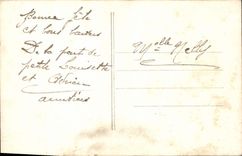 Bonne fête
et bons baisers
De la part de
petite Louisette
et
Mlle Nelly